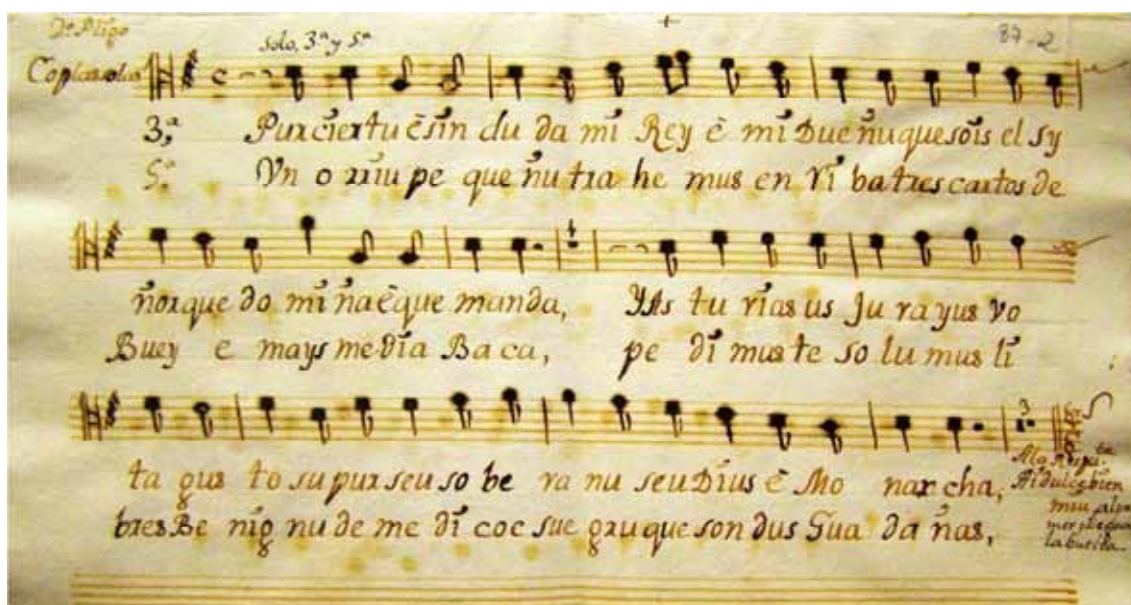 solo, 3ª y 5ª
87-2
Coplas solas
3ª Pur ciertu è sin du da mi Rey è mi Due ñu que sois el sy
5ª Vn o rriu pe que ñu tra he mus en ri ba tres cartos de
ñor que do mi ña è que manda, YAs tu rias us Ju ra yus vo
Buey e mays me dia Baca, pe di mus te so lu mus li
3
ta gus to su pur seu so be ra nu seu Dius è Mo nar cha,
bres Be nig nu de me di co e sue gru que son dus Gua da ñas,
Ai dulce bien
miu